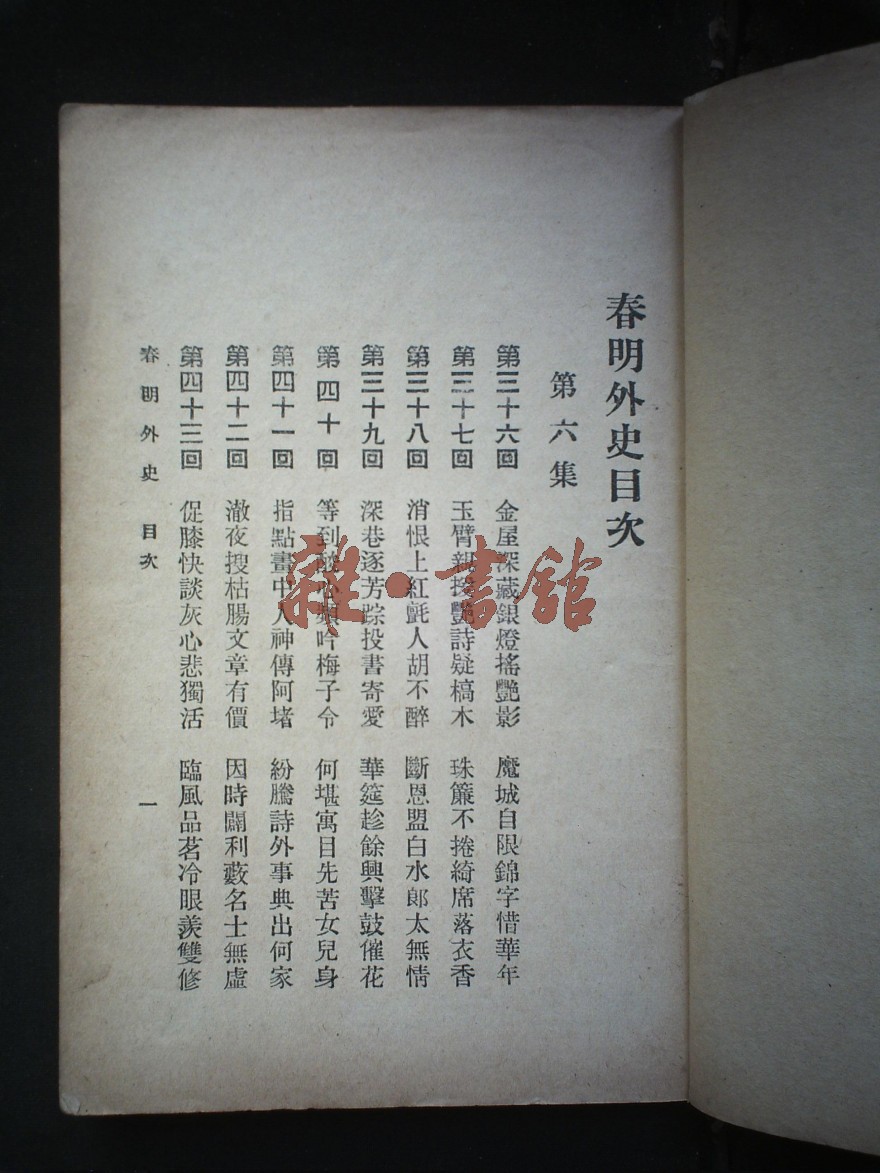 春明外史目次
第六集
第三十六回 金屋深藏銀燈搖艷影 魔城自限錦字惜華年
第三十七回 玉臂親援艷詩疑槁木 珠簾不捲綺席落衣香
第三十八回 消恨上紅氈人胡不醉 斷恩盟白水郎太無情
第三十九回 深巷逐芳踪投書寄愛 華筵趁餘興擊鼓催花
第四十回 等到酸心頻吟梅子令 何堪寓目先苦女兒身
第四十一回 指點畫中人神傳阿堵 紛騰詩外事典出何家
第四十二回 澈夜搜枯腸文章有價 因時闢利藪名士無虛
第四十三回 促膝快談灰心悲獨活 臨風品茗冷眼羨雙修
春明外史 目次 一
雜·書館